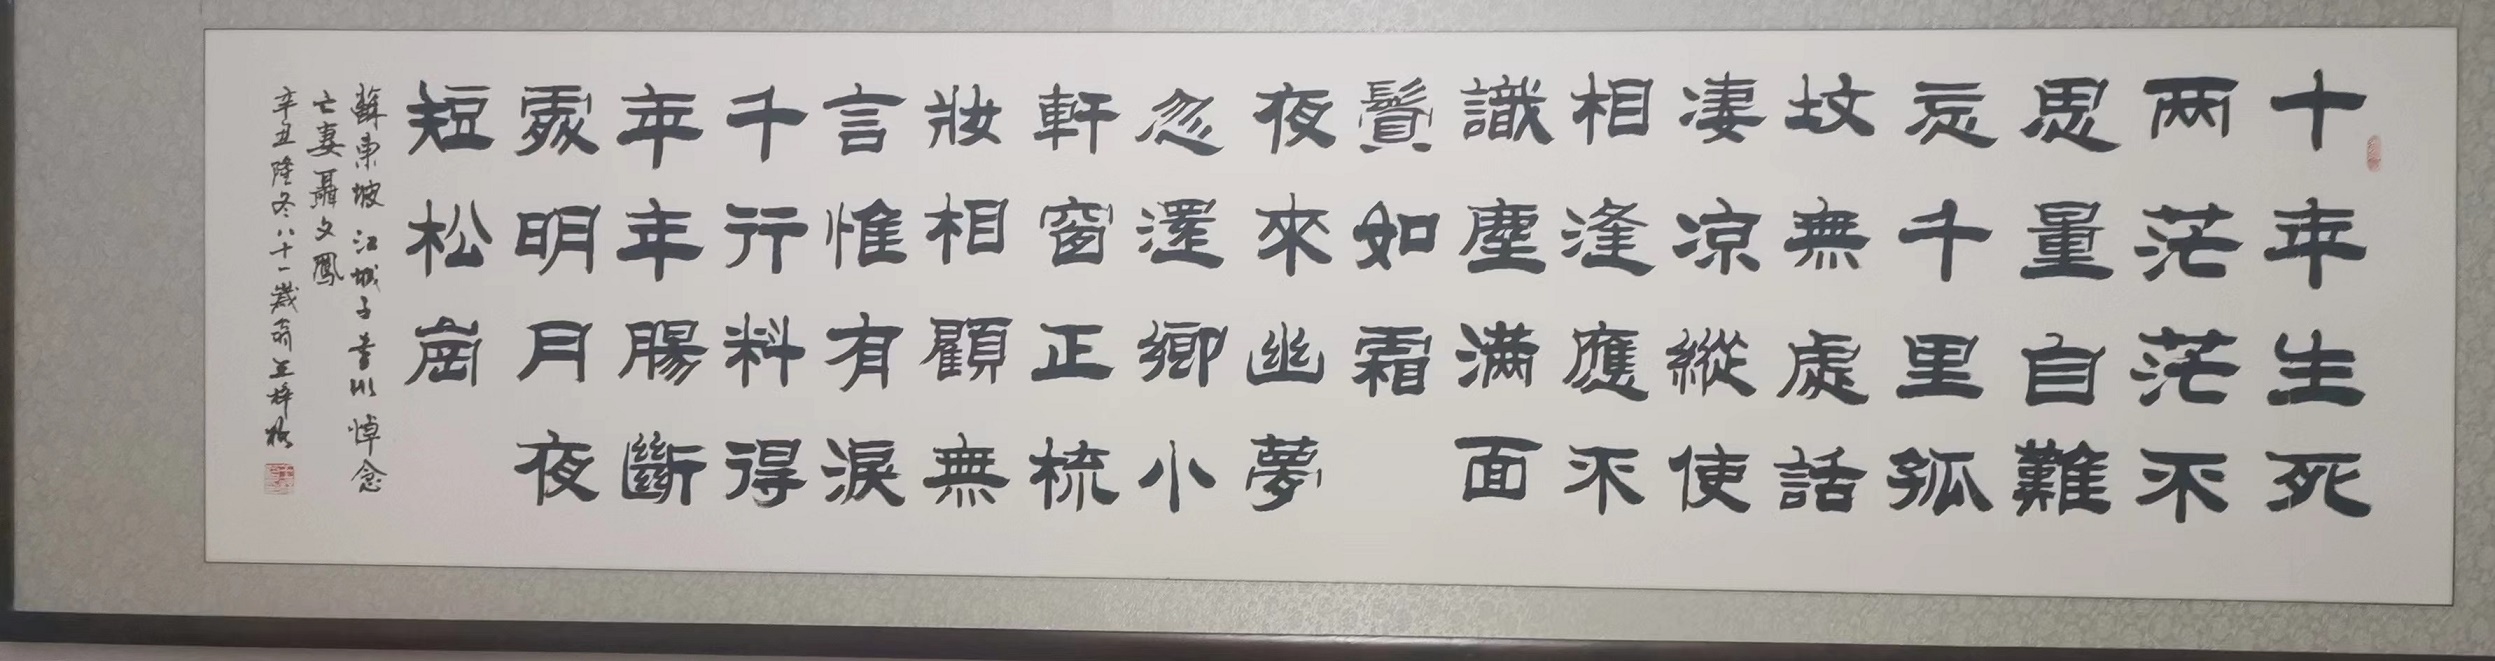 十年生死
两茫茫不
思量自難
忘千里孤
坟無處話
凄凉縱使
相逢應不
識塵满面
鬢如霜
夜來幽夢
忽還鄉小
軒窗正梳
妝相顧無
言惟有淚
千行料得
年年腸斷
處明月夜
短松崗
蘇東坡江城子書以悼念
亡妻聶文鳳
辛丑隆冬八十一歲翁